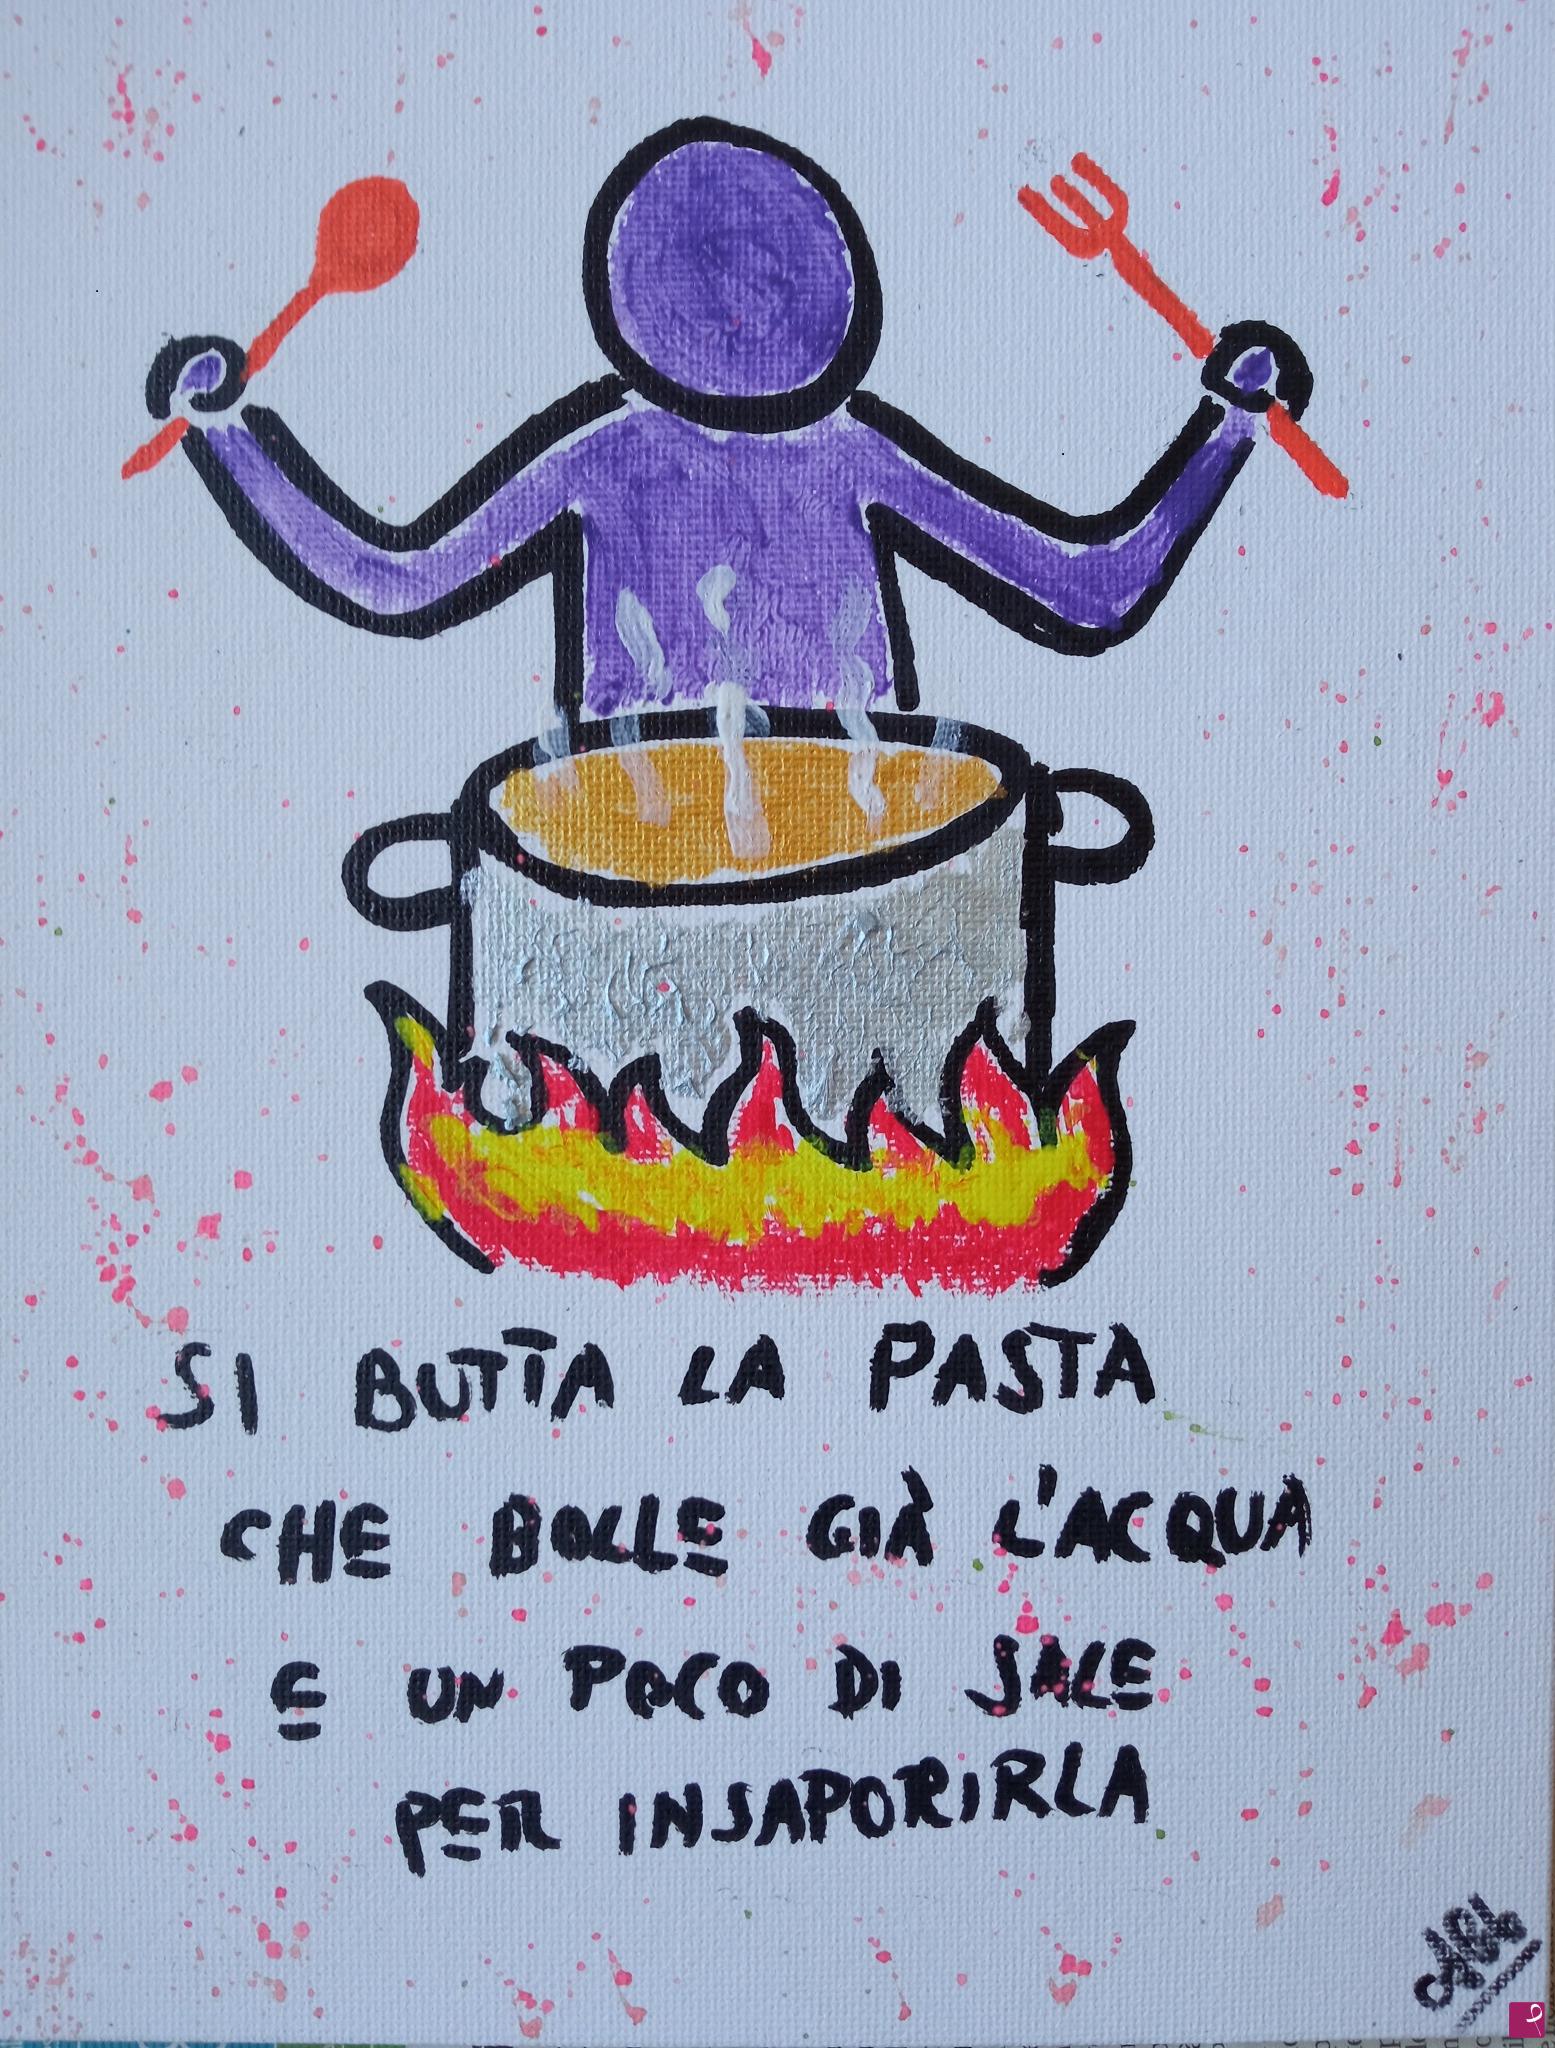 SI BUTTA LA PASTA
CHE BOLLE GIÀ L'ACQUA
E UN POCO DI SALE
PER INSAPORIRLA